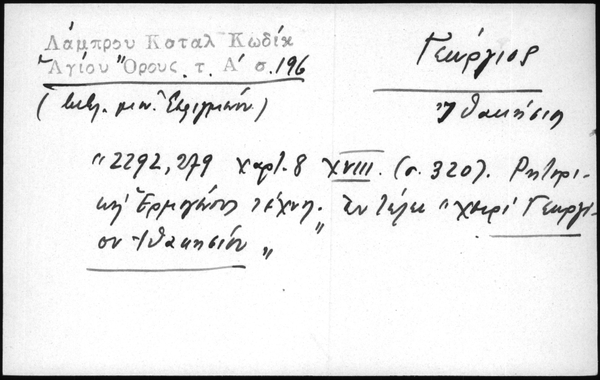 Λάμπρου Καταλ Κωδίκ
Ἁγίου Ὄρους. τ. Α' σ. 196
Γεώργιος
(βιβλ. μον. Ἐσφιγμένου)
Ἰθακήσιος
"2292, 279 χαρτ. 8 XVIII. (σ. 320). Ρητορι-
κὴ Ἑρμογένους τέχνη. Ἐν τέλει "χειρὶ Γεωργί-
ου Ἰθακησίου"